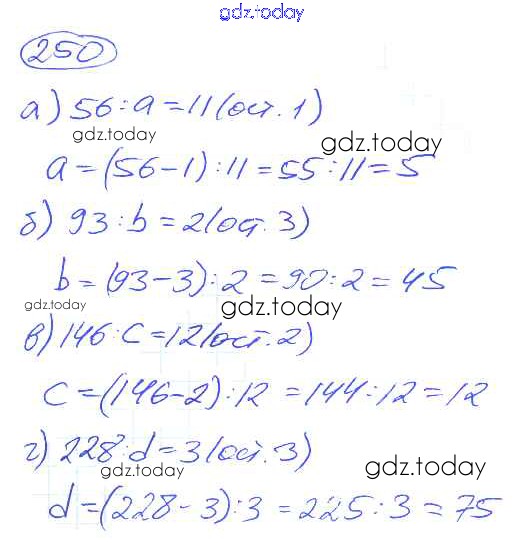 gdz.today
250
а) 56 : a = 11 (ост. 1)
gdz.today
gdz.today
a = (56 - 1) : 11 = 55 : 11 = 5
б) 93 : b = 2 (ост. 3)
b = (93 - 3) : 2 = 90 : 2 = 45
gdz.today
gdz.today
в) 146 : c = 12 (ост. 2)
c = (146 - 2) : 12 = 144 : 12 = 12
г) 228 : d = 3 (ост. 3)
gdz.today
gdz.today
d = (228 - 3) : 3 = 225 : 3 = 75